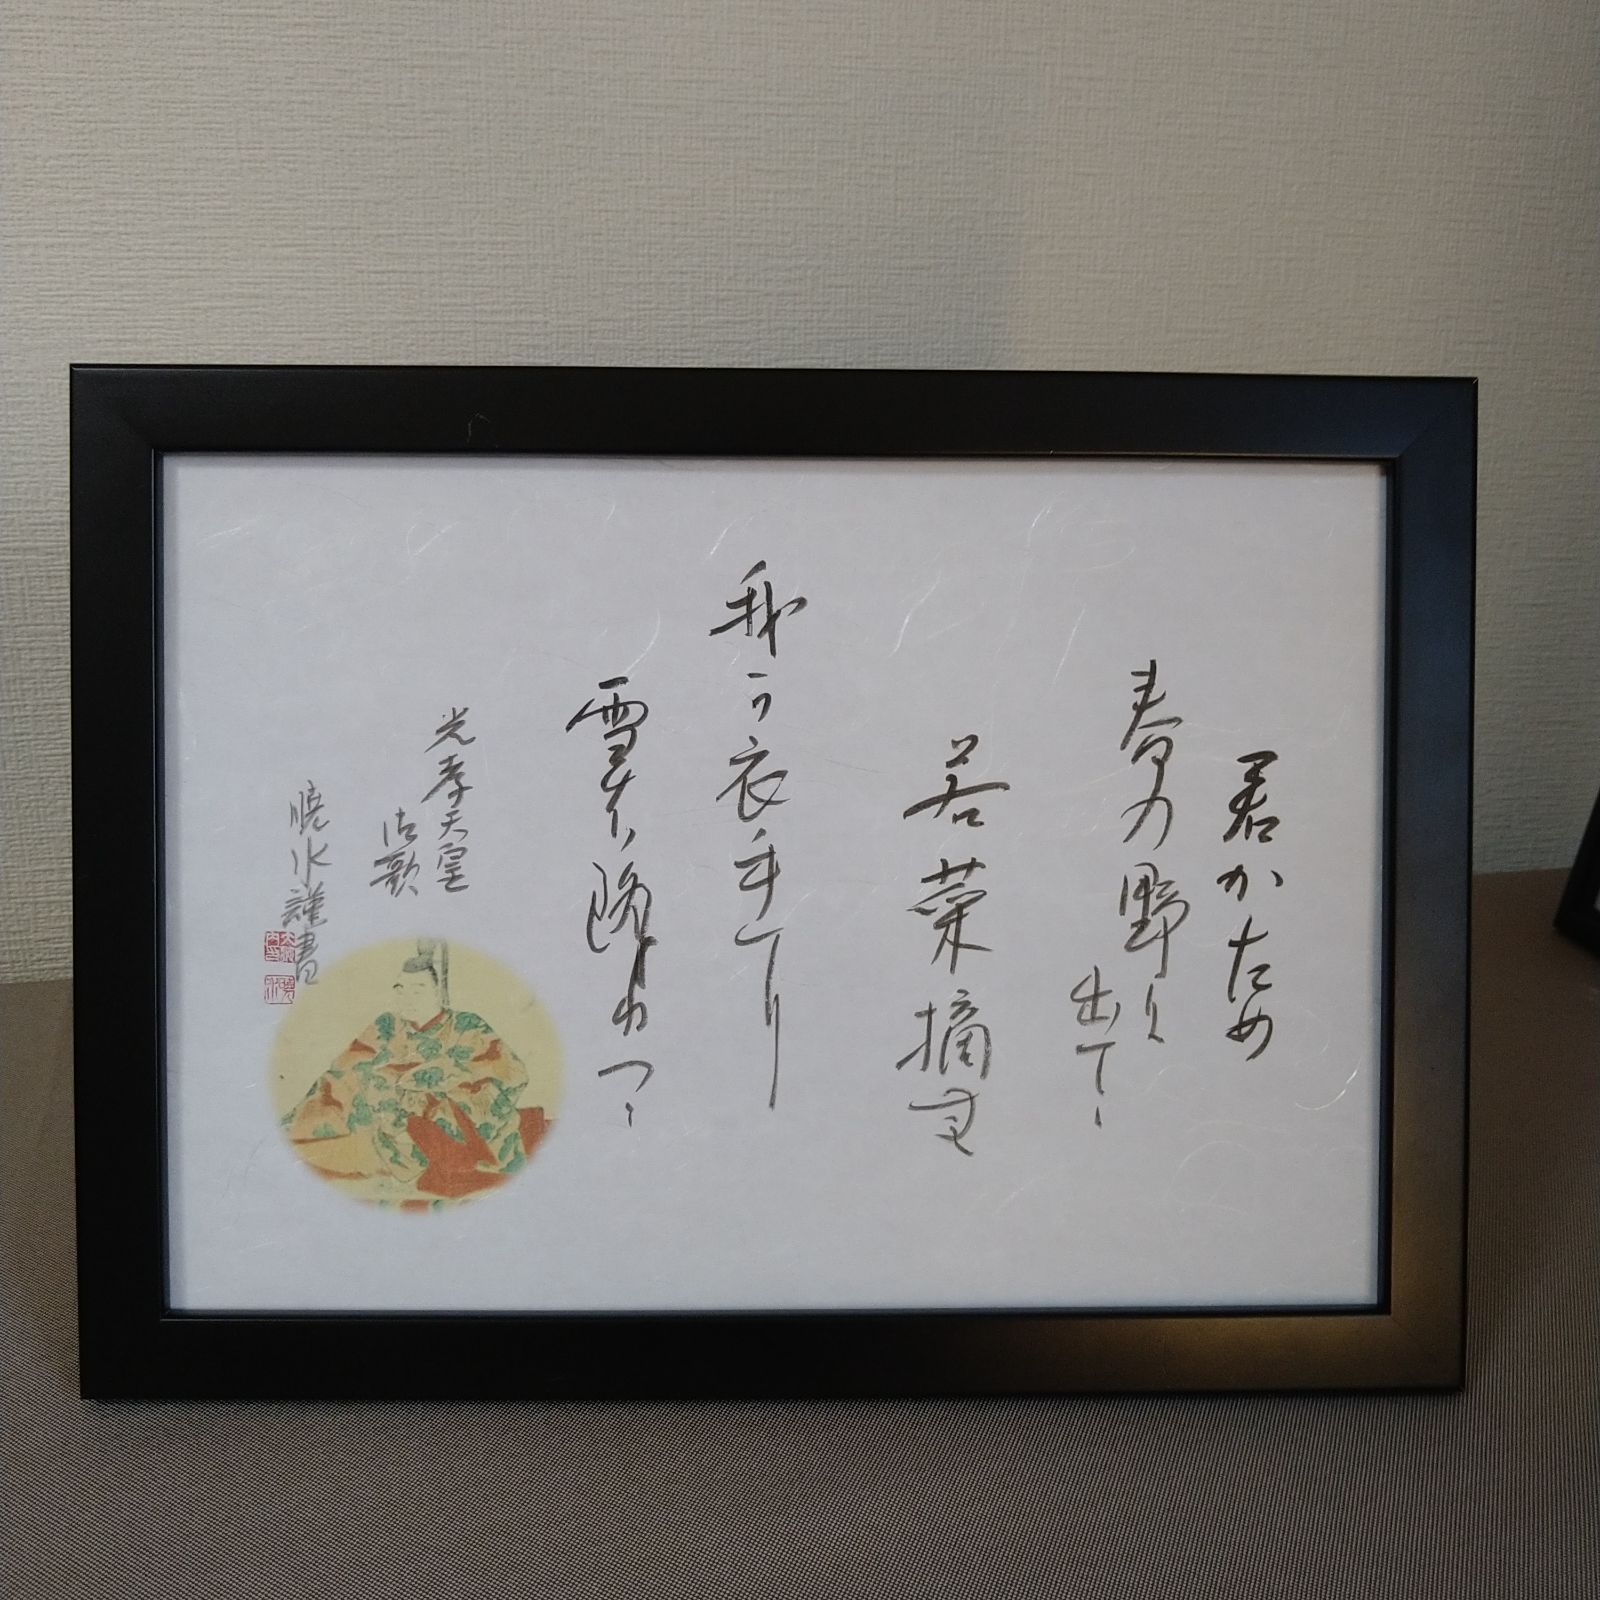 君かため
春の野に
出てゝ
若菜摘む
我か衣手に
雪は降りつゝ
光孝天皇
御歌
暁水謹書